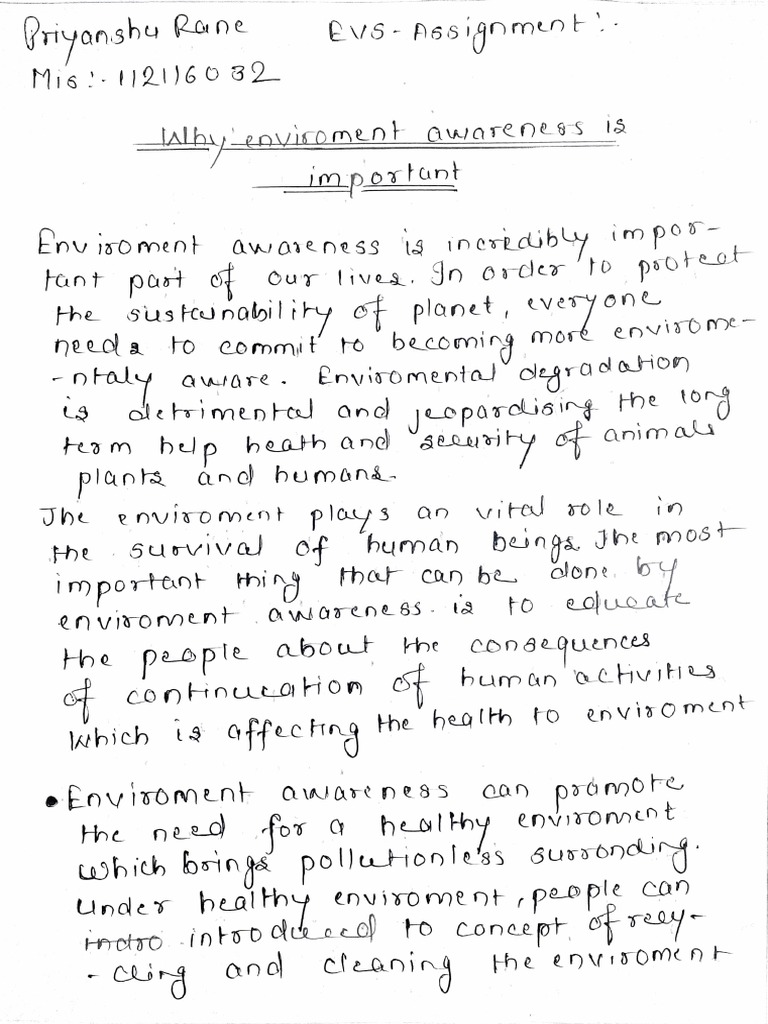 Priyanshu Rane EVS-Assignment:-
Mis:- 112116032
Why enviroment awareness is
important
Enviroment awareness is incredibly impor-
tant part of our lives. In order to protect
the sustainability of planet, everyone
needs to commit to becoming more envirome-
-ntaly aware. Enviromental degradation
is detrimental and jeopardising the long
term help heath and security of animals
plants and humans.
The enviroment plays an vital role in
the survival of human beings. The most
important thing that can be done by
enviroment awareness is to educate
the people about the consequences
of continucation of human activities
which is affecting the health to enviroment
• Enviroment awareness can promote
the need for a healthy enviroment
which brings pollutionless surronding.
Under healthy enviroment, people can
indro introduced to concept of recy-
-cling and cleaning the enviroment